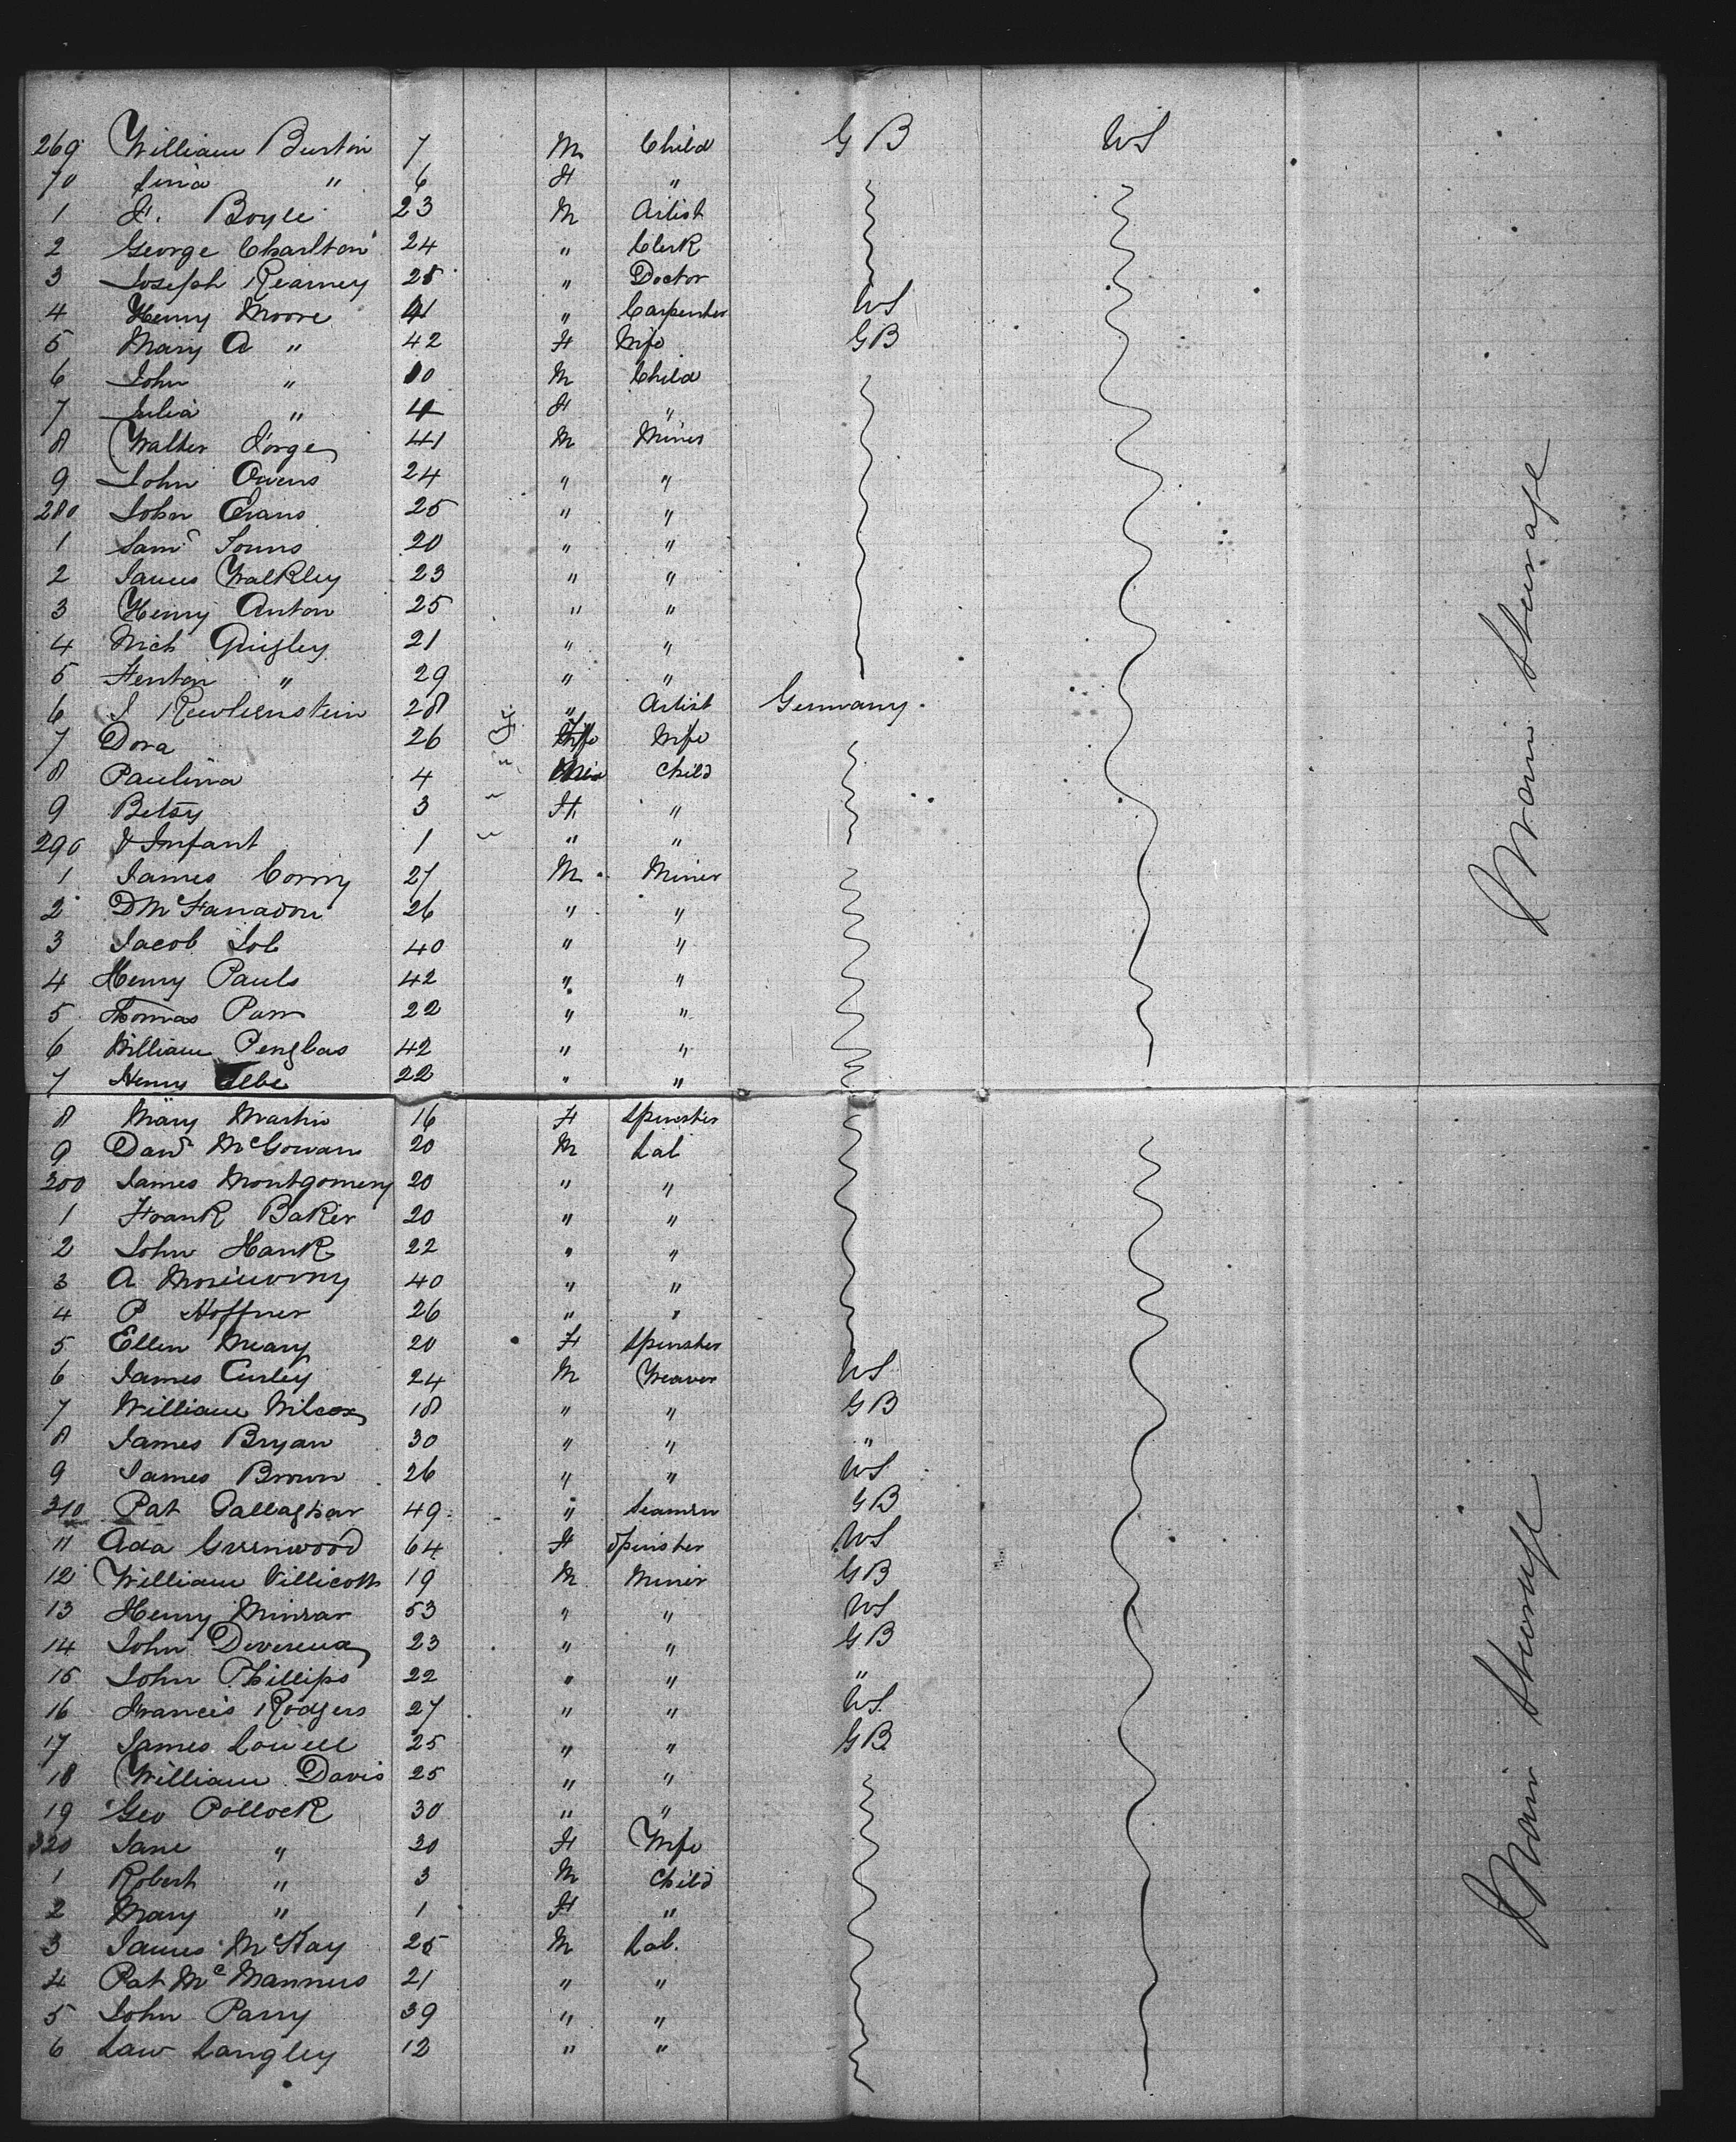 269 William Burton 7 M Child GB WS
70 " 6 F "
1 F. Boyle 23 M Artist
2 George Charlton 24 " Clerk
3 Joseph Kearney 28 " Doctor
4 Henry Moore 41 " Carpenter WS
5 Mary A " 42 F Wife GB
6 John " 10 M Child
7 Julia " 4 F "
8 Walter Forge 41 M Miner
9 John Owens 24 " "
280 John Evans 25 " "
1 Saml 20 " "
2 James Walkley 23 " "
3 Henry Anton 25 " "
4 Nich Quigley 21 " "
5 Fenton " 29 " "
6 J 28 " Artist Germany
7 Dora 26 Wife
8 Paulina 4 " Child
9 Betsy 3 " F "
290 & Infant 1 " " "
1 James Corny 27 M Miner
2 26 " "
3 Jacob Job 40 " "
4 Henry Pauls 42 " "
5 Thomas 22 " "
6 William Penglas 42 " "
7 Henry 22 " "
8 Mary Martin 16 F Spinster
9 Davd McGowan 20 M Lab
300 James Montgomery 20 " "
1 Frank Baker 20 " "
2 John Hank 22 " "
3 A 40 " "
4 P Hoffner 26 " "
5 Ellen Meany 20 F Spinster
6 James Curley 24 M Weaver WS
7 William Wilcox 18 " " GB
8 James Bryan 30 " " "
9 James Brown 26 " " WS
310 Pat Gallaghar 49 " Seaman GB
11 Ada Greenwood 64 F Spinster WS
12 William 19 M Miner GB
13 Henry Minear 53 " " WS
14 John Devereux 23 " " GB
15 John Phillips 22 " " "
16 Francis Rodgers 27 " " WS
17 James 25 " " GB
18 William Davis 25 " "
19 Geo Pollock 30 " "
320 Jane " 30 F Wife
1 Robert " 3 M Child
2 Mary " 1 F "
3 James McKay 25 M Lab.
4 Pat Mc Mannus 21 " "
5 John Parry 39 " "
6 Law Langley 12 " "
Main Steerage
Main Steerage